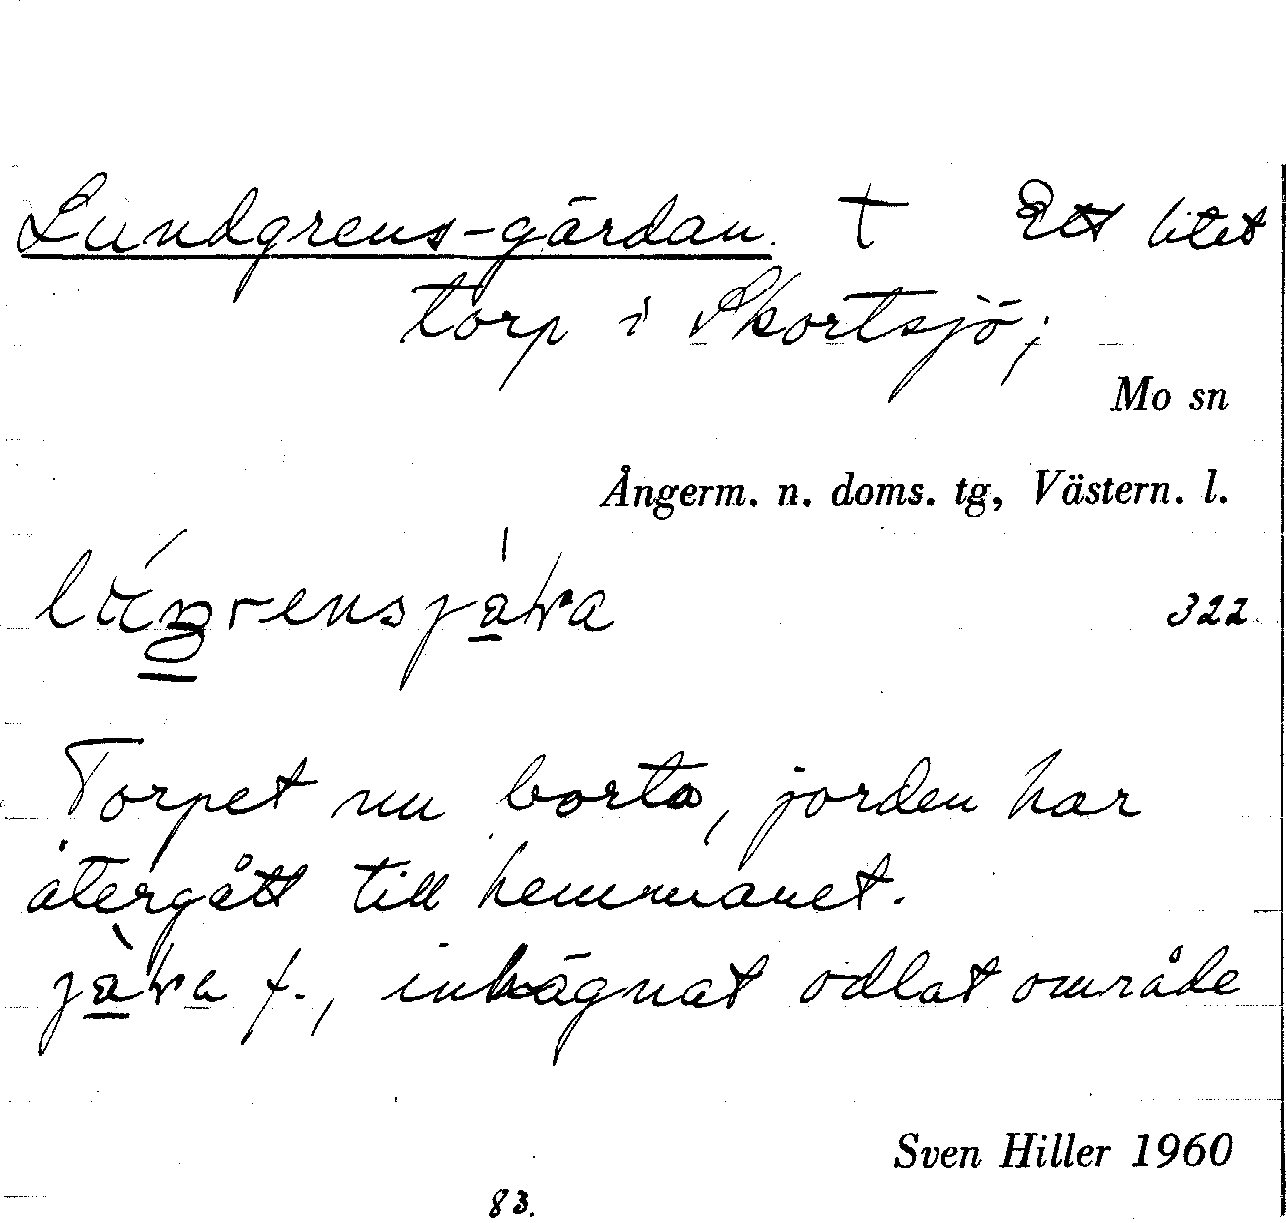 Lundgrens-gärdan. † Ett litet
torp i Skortsjö;
Mo sn
Ångerm. n. doms. tg, Västern. l.
322
Torpet nu borta, jorden har
återgått till hemmanet.
f., inhägnat odlat område
Sven Hiller 1960
83.